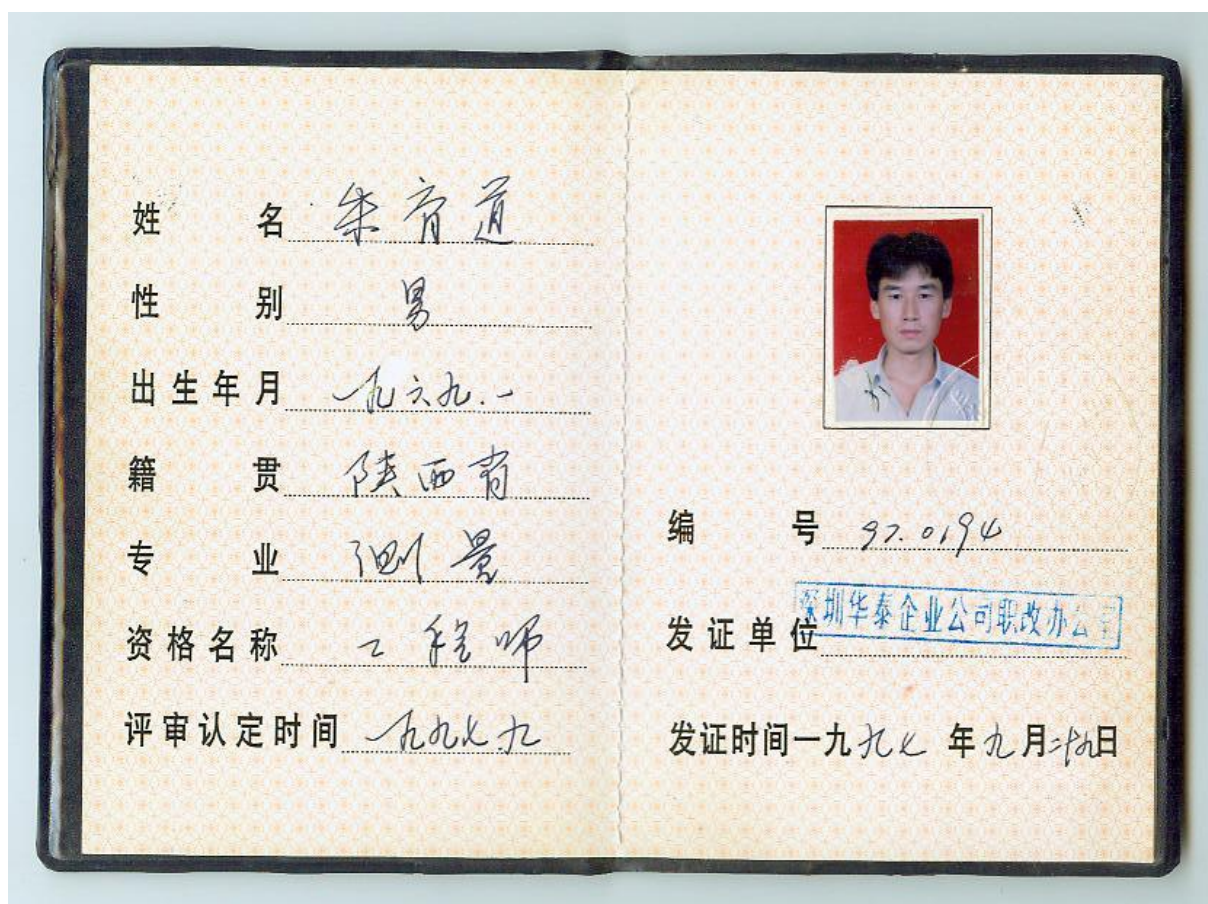 姓名 朱育道
性别 男
出生年月 一九六九.一
籍贯 陕西省
专业 测量
资格名称 工程师
评审认定时间 一九九七.九
编号 97.0194
发证单位 深圳华泰企业公司职改办公室
发证时间一九九七年九月二十九日